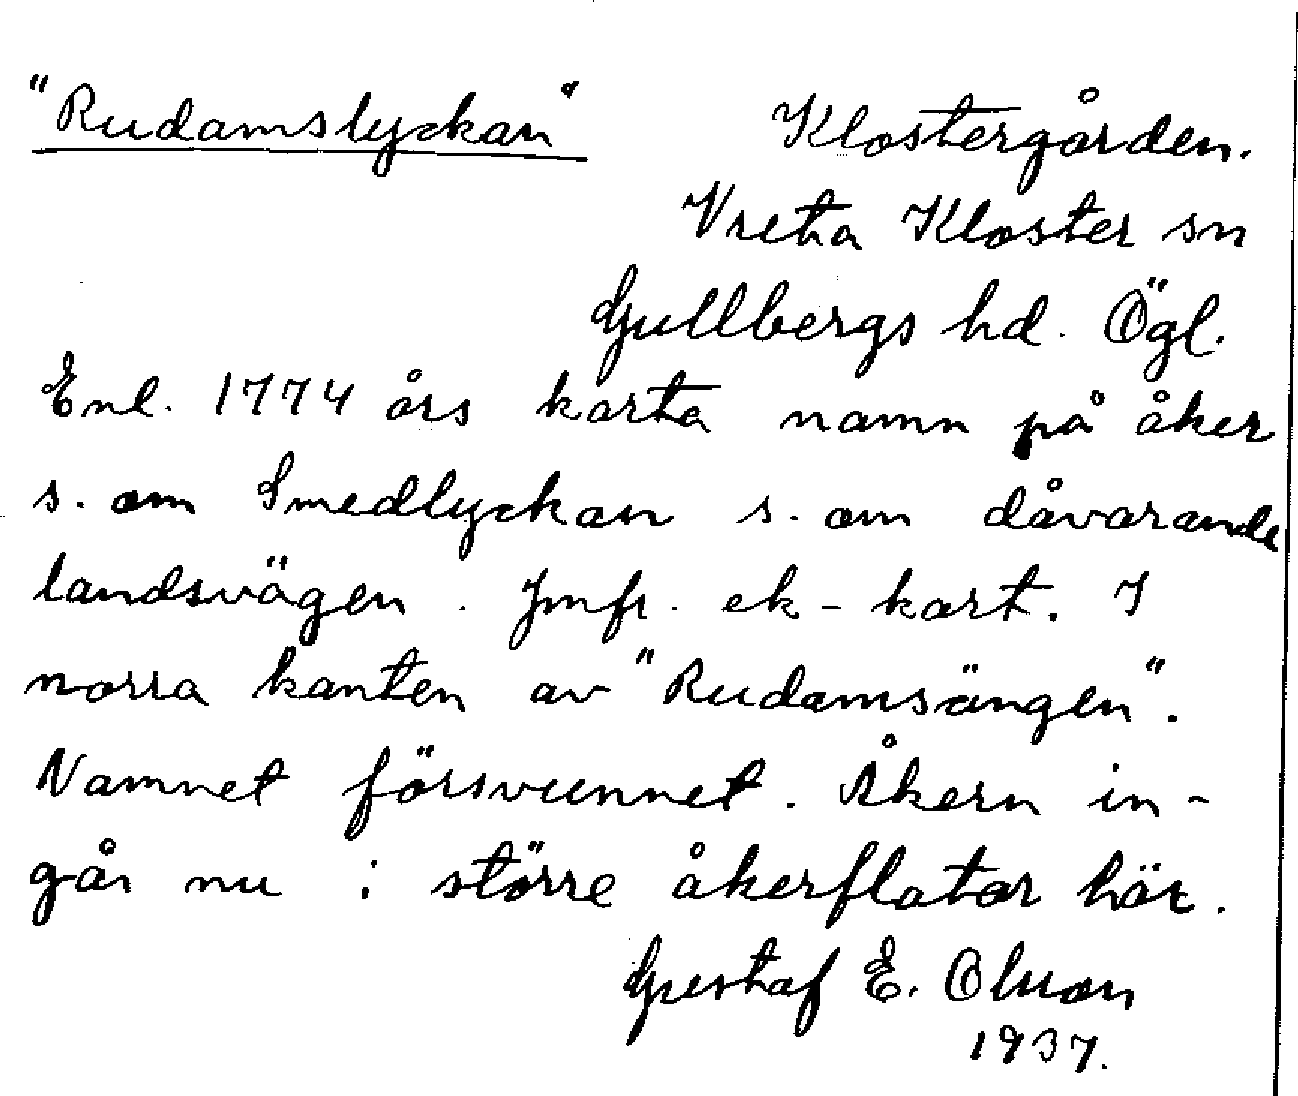 "Rudamslyckan"
Klostergården.
Vreta Kloster sn
Gullbergs hd. Ögl.
Enl. 1774 års karta namn på åker
s. om Smedlyckan s. om dåvarande
landsvägen. Jmfr. ek-kart. I
norra kanten av "Rudamsängen".
Namnet försvunnet. Åkern in-
går nu i större åkerflator här.
Gustaf E. Olsson
1937.